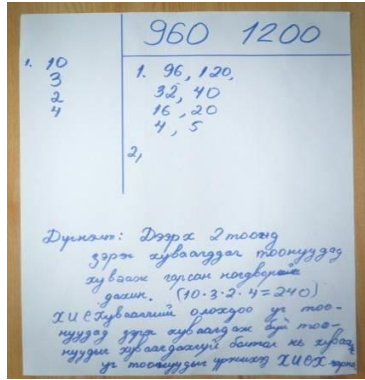 960 1200
1. 10
3
2
4
1. 96, 120,
32, 40
16, 20
4, 5
2,
Дүгнэлт: Дээрх 2 тоонд
зэрэг хуваагддаг тоонуудад
хувааж гарсан ногдворыг
дахин. (10·3·2·4=240)
ХИЕХуваагчийг олохдоо уг тоо-
нуудад зэрэг хуваагдаж буй тоо-
нуудыг хуваагдахгүй болтол нь хувааж
уг тоонуудын үржвэр ХИЕХ